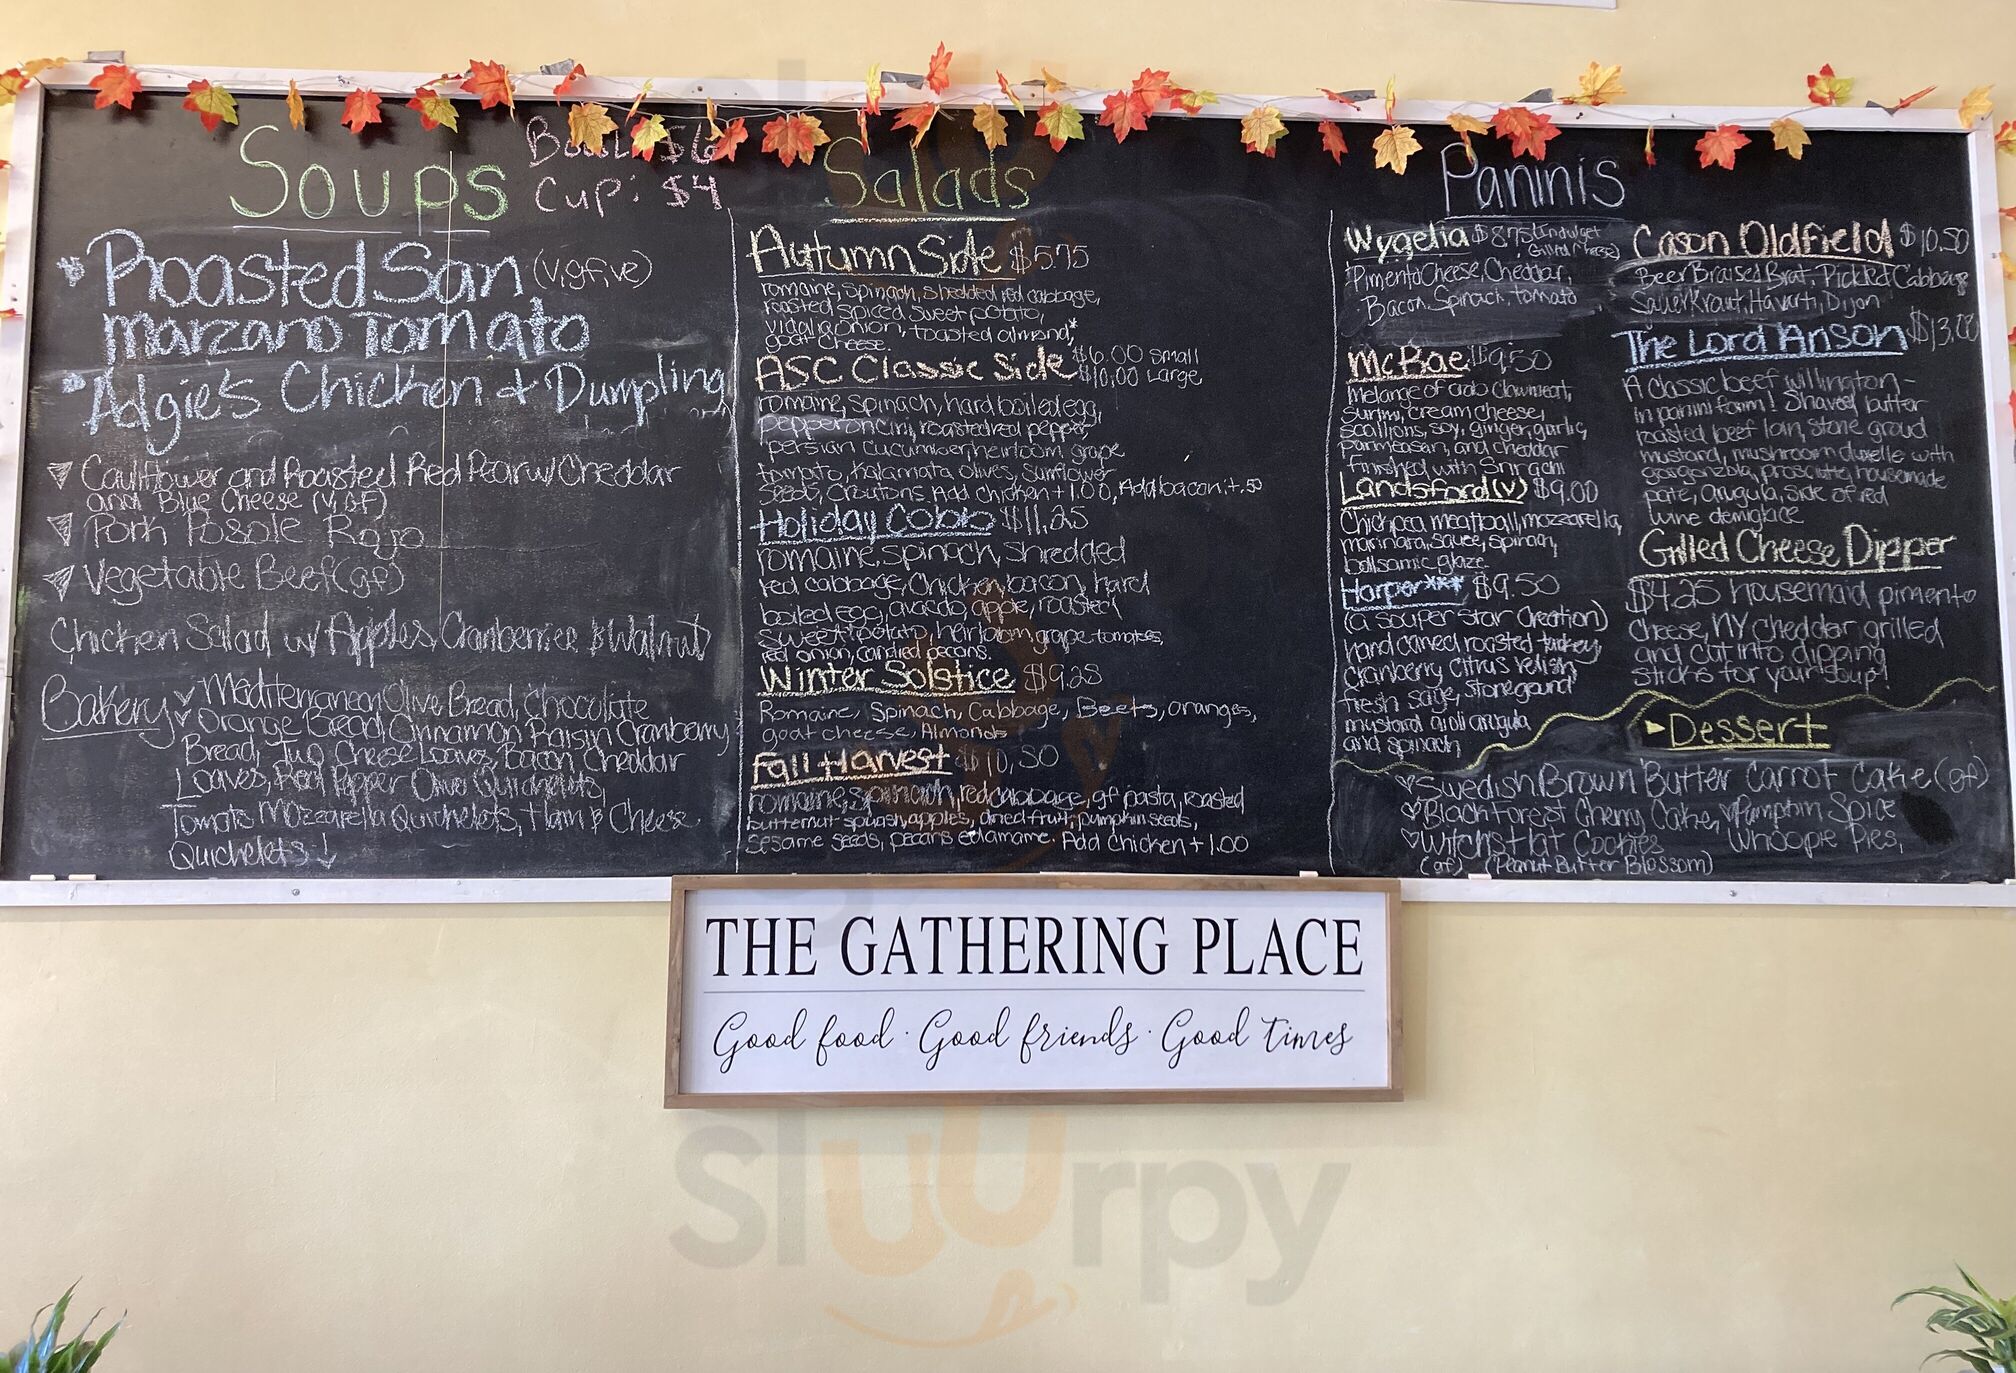 Soups
Bowl: $6
Cup: $4
Roasted San (v,gf,ve)
marzano Tomato
Adgie's Chicken & Dumpling
Cauliflower and Roasted Red Pear w/ Cheddar
and Blue Cheese (v,gf)
Pork Posole Rojo
Vegetable Beef (gf)
Chicken Salad w/ Apples, Cranberries & Walnut
Bakery
Mediterranean Olive Bread, Chocolate
Orange Bread, Cinnamon Raisin Cranberry
Bread, Cheese Loaves, Bacon Cheddar
Loaves, Red Pepper Olive Quichelets,
Tomato Mozzarella Quichelets, Ham & Cheese
Quichelets
Salads
Autumn Side $5.75
romaine, spinach, shedded red cabbage,
roasted spiced sweet potato,
vidalia onion, toasted almond,
goat cheese.
ASC Classic Side $6.00 Small
$10.00 Large
romaine, spinach, hard boiled egg,
pepperoncini, roasted red pepper,
persian cucumber, heirloom grape
tomato, Kalamata olives, sunflower
seeds, croutons Add Chicken +1.00, Add bacon: +.50
Holiday Cobb $11.25
romaine, spinach, shredded
red cabbage, chicken, bacon, hard
boiled egg, avacado, apple, roasted
sweet potato, heirloom grape tomatoes,
red onion, candied pecans.
Winter Solstice $9.25
Romaine, Spinach, Cabbage, Beets, oranges,
goat cheese, Almonds
Fall Harvest $10.50
romaine, spinach, red cabbage, gf pasta, roasted
butternut squash, apples, dried fruit, pumpkin seeds,
sesame seeds, pecans edamame. Add chicken +1.00
Paninis
Wygelia $8.75
Grilled Cheese)
Pimento Cheese, Cheddar,
Bacon, Spinach, tomato
McBae $9.50
melange of crab clawmeat,
surimi, cream cheese,
scallions, soy, ginger, garlic,
parmeasan, and cheddar
finished with Sriracha
Landsford (v) $9.00
Chickpea meatball, mozzarella,
marinara, sauce, spinach,
balsamic glaze.
Harper*** $9.50
(a souper star creation)
hand carved roasted turkey
cranberry citrus relish,
fresh sage, stoneground
mustard aioli arugula
and spinach
Cason Oldfield $10.50
Beer Braised Brat, Pickled Cabbage
Sauerkraut, Havarti, Dijon
The Lord Anson $13.00
A classic beef willington -
in panini form! Shaved butter
roasted beef loin, stone groud
mustard, mushroom duxelle with
gorgonzola, prosciutto, housemade
pate, arugula, side of red
wine demiglace
Grilled Cheese Dipper
$4.25 housemaid pimento
cheese, NY cheddar grilled
and cut into dipping
sticks for your soup!
Dessert
Swedish Brown Butter Carrot Cake (gf)
Black Forest Cherry Cake, Pumpkin Spice
Witch's Hat Cookies Whoopie Pies,
(gf) (Peanut Butter Blossom)
THE GATHERING PLACE
Good food · Good friends · Good times
sluurpy